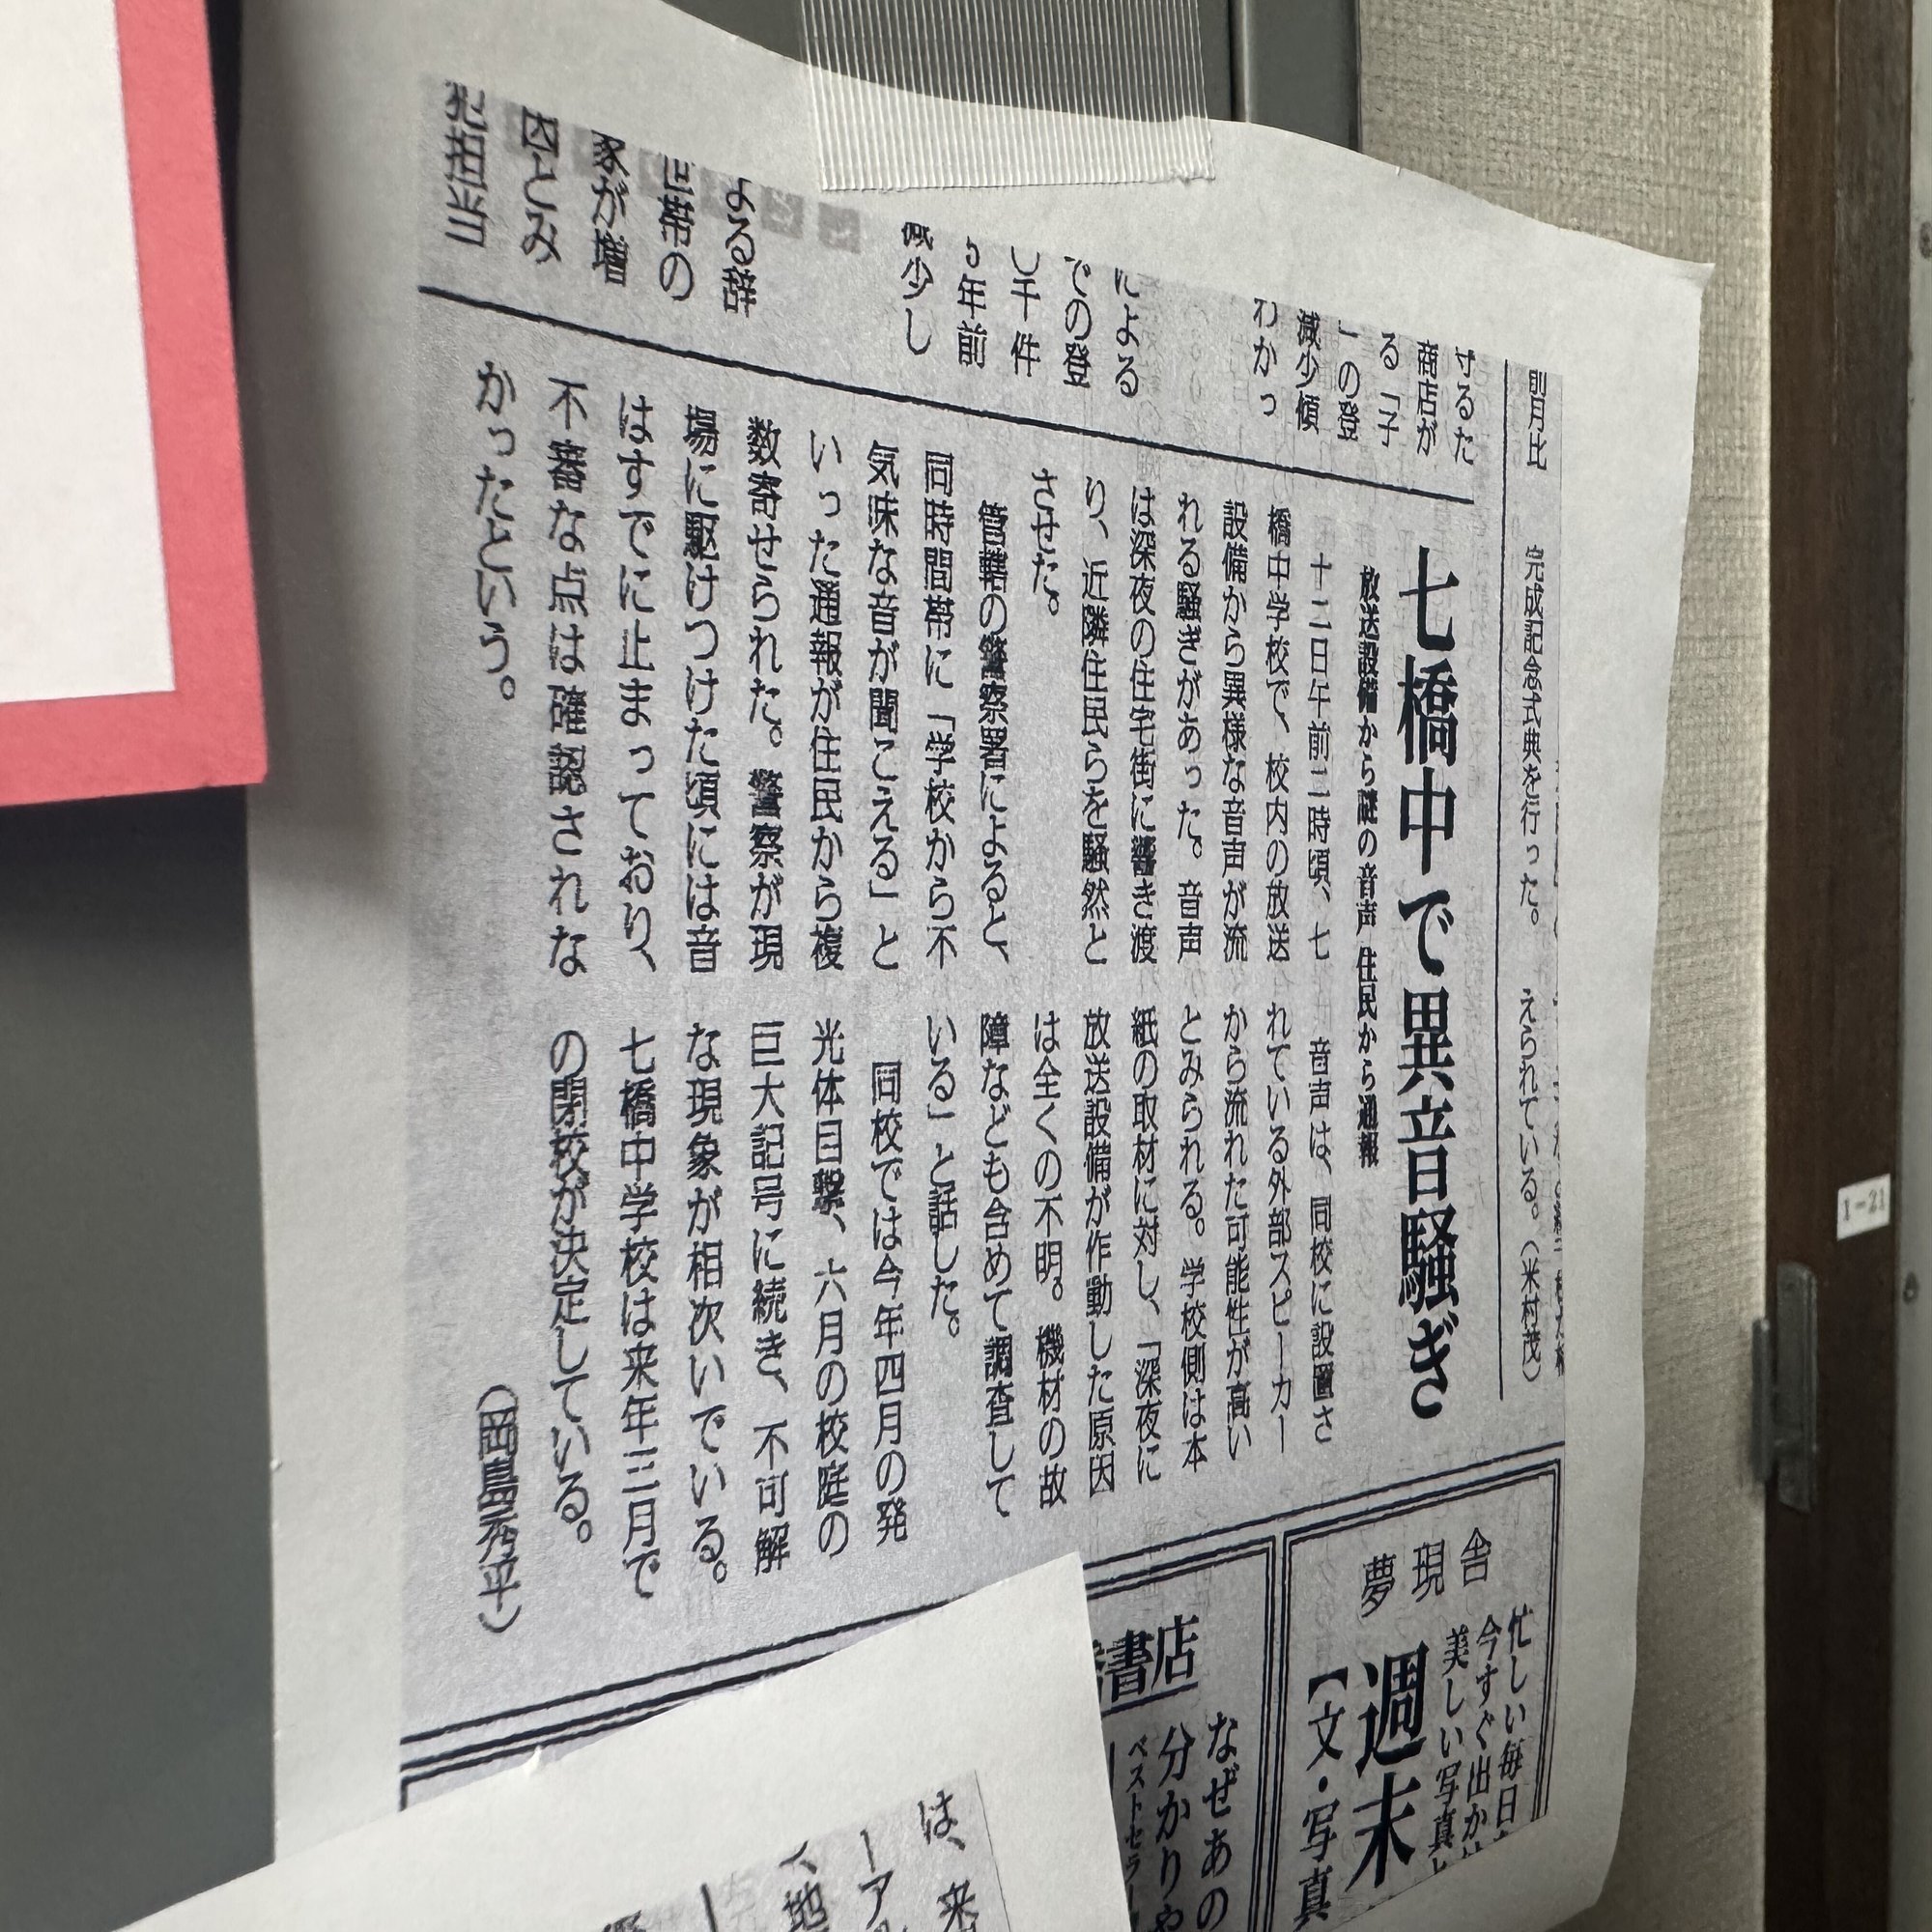 完成記念式典を行った。
えられている。(米村茂)
七橋中で異音騒ぎ
放送設備から謎の音声 住民から通報
十二日午前二時頃、七
橋中学校で、校内の放送
設備から異様な音声が流
れる騒ぎがあった。音声
は深夜の住宅街に響き渡
り、近隣住民らを騒然と
させた。
管轄の警察署によると、
同時間帯に「学校から不
気味な音が聞こえる」と
いった通報が住民から複
数寄せられた。警察が現
場に駆けつけた頃には音
はすでに止まっており、
不審な点は確認されな
かったという。
音声は、同校に設置さ
れている外部スピーカー
から流れた可能性が高い
とみられる。学校側は本
紙の取材に対し、「深夜に
放送設備が作動した原因
は全くの不明。機材の故
障なども含めて調査して
いる」と話した。
同校では今年四月の発
光体目撃、六月の校庭の
巨大記号に続き、不可解
な現象が相次いでいる。
七橋中学校は来年三月で
の閉校が決定している。
(岡島秀平)
前月比
けるた
商店が
る「子
」の登
減少傾
わかっ
による
での登
し千件
年前
減少し
よる辞
世帯の
家が増
因とみ
犯担当
夢現舎
忙しい毎日
今すぐ出か
美しい写真と
週末
【文・写真
書店
なぜあの
分かりや
ベストセラー
は、来
ーア
1-21